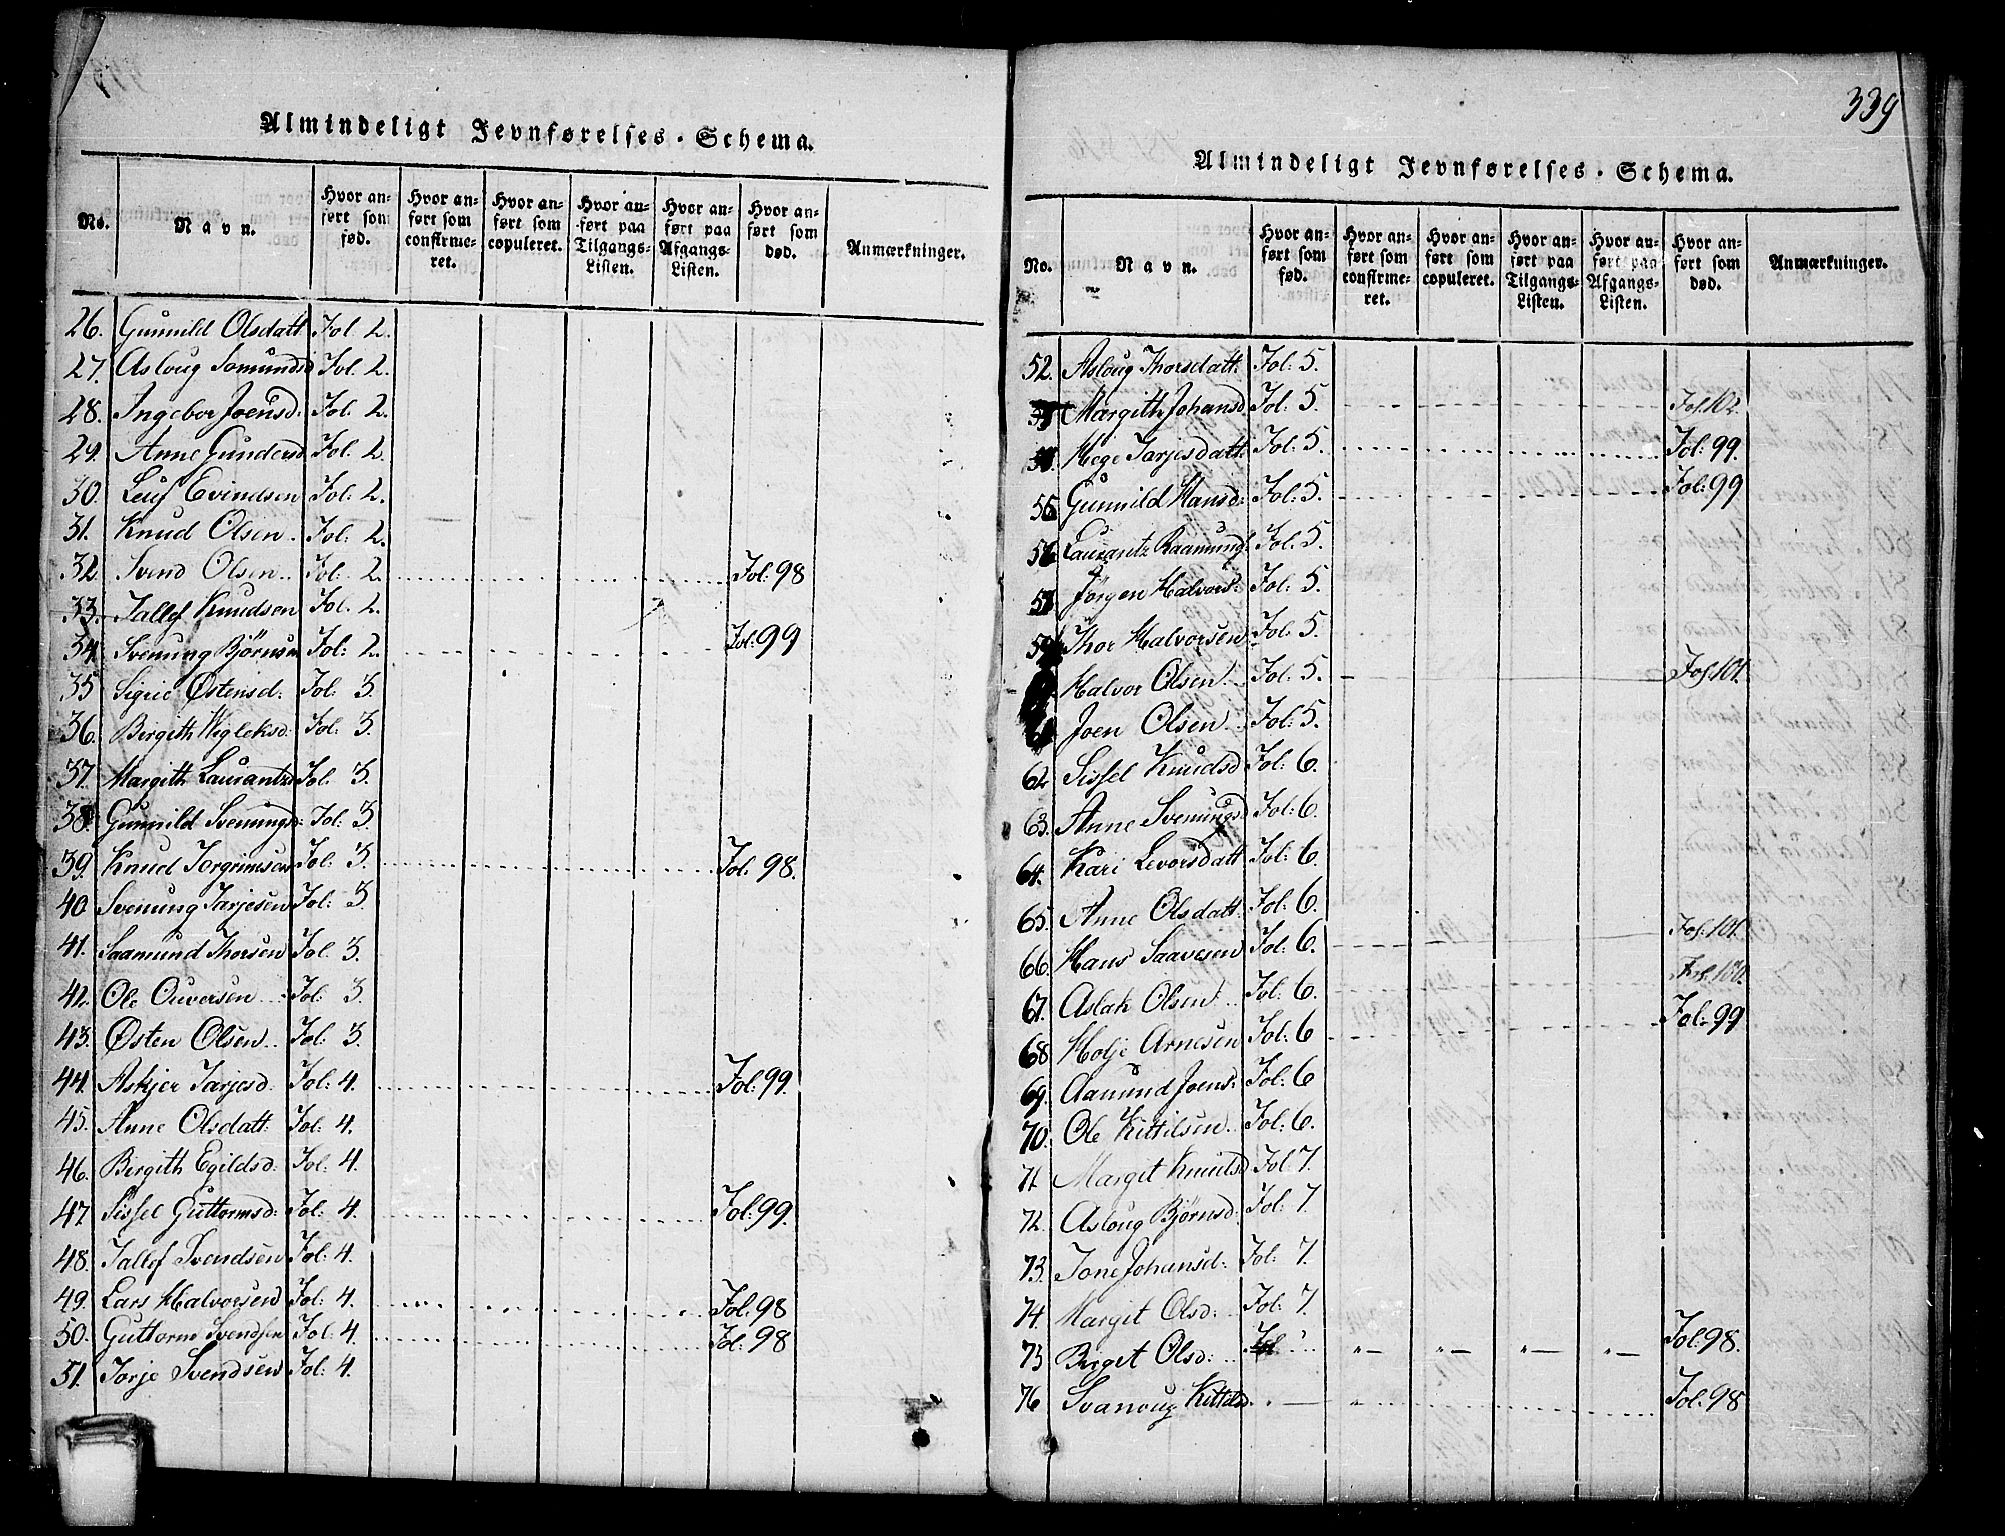 Almindeligt Jevnførelses-Schema.
No. Navn. Hvor anført som fød. Hvor anført som confirmeret. Hvor anført som copuleret. Hvor anført paa Tilgangs-Listen. Hvor anført paa Afgangs-Listen. Hvor anført som død. Anmærkninger.
26. Gunnild Olsdatt Fol 2.
27. Asloug Somundsd Fol. 2.
28. Ingebor Joensd: Fol: 2.
29. Anne Gundersd Fol: 2.
30. Leuf Evindsen Fol: 2.
31. Knud Olsen. Fol: 2.
32. Svend Olsen.. Fol: 2. Fol: 98
33. Tallef Knudsen Fol: 2.
34. Svenung Bjørnsen Fol: 2. Fol: 99
35 Sigrie Østensd. Fol: 3.
36. Birgith Wigleksd: Fol: 3.
37. Margith Laurantzd Fol: 3.
38. Gunnild Svenungsd: Fol: 3.
39. Knud Torgrimsen Fol: 3. Fol: 98.
40 Svenung Tarjesen Fol: 3.
41. Saamund Thorsen Fol 3.
42. Ole Ouversen.. Fol: 3.
43. Østen Olsen.. Fol: 3.
44. Askjer Tarjesd. Fol: 4. Fol: 99.
45. Anne Olsdatt: Fol: 4.
46. Birgith Egildsd: Fol: 4.
47. Sissel Guttormsd: Fol: 4. Fol: 99.
48. Tallef Svendsen Fol: 4.
49. Lars Halvorsen Fol: 4. Fol: 98
50. Guttorm Svendsen Fol: 4. Fol: 98
51. Torje Svendsen Fol: 4.
339
Almindeligt Jevnførelses-Schema.
No. Navn. Hvor anført som fød. Hvor anført som confirmeret. Hvor anført som copuleret. Hvor anført paa Tilgangs-Listen. Hvor anført paa Afgangs-Listen. Hvor anført som død. Anmærkninger.
52. Asloug Thorsdatt: Fol: 5.
Margith Johansd Fol: 5. Fol. 102.
Hege Tarjesdatt: Fol: 5. Fol: 99.
55. Gunnild Hansd: Fol: 5. Fol: 99
56. Laurantz Raamungs Fol: 5.
Jørgen Halvors: Fol: 5.
Thor Halvorsen Fol: 5.
Halvor Olsen. Fol: 5. Fol. 101.
Joen Olsen. Fol: 5.
62 Sissel Knudsd Fol: 6.
63. Anne Svenungsd Fol: 6.
64. Kari Levorsdatt Fol: 6.
65. Anne Olsdatt. Fol: 6.
66. Hans Saavesen Fol: 6. Fol. 101.
67. Aslak Olsen. Fol: 6. Fol. 100.
68 Holje Arnesen Fol: 6 Fol: 99
69. Aamund Joens: Fol: 6
70. Ole Kittilsen. Fol: 6.
71 Margit Knudsd Fol: 7.
72. Asloug Bjørnsd. Fol: 7.
73. Tone Johansd: Fol: 7.
74. Margit Olsd: Fol: 7.
75 Birget Olsd: Fol Fol: 98.
76 Svanoug Kittilsd. Fol: 98